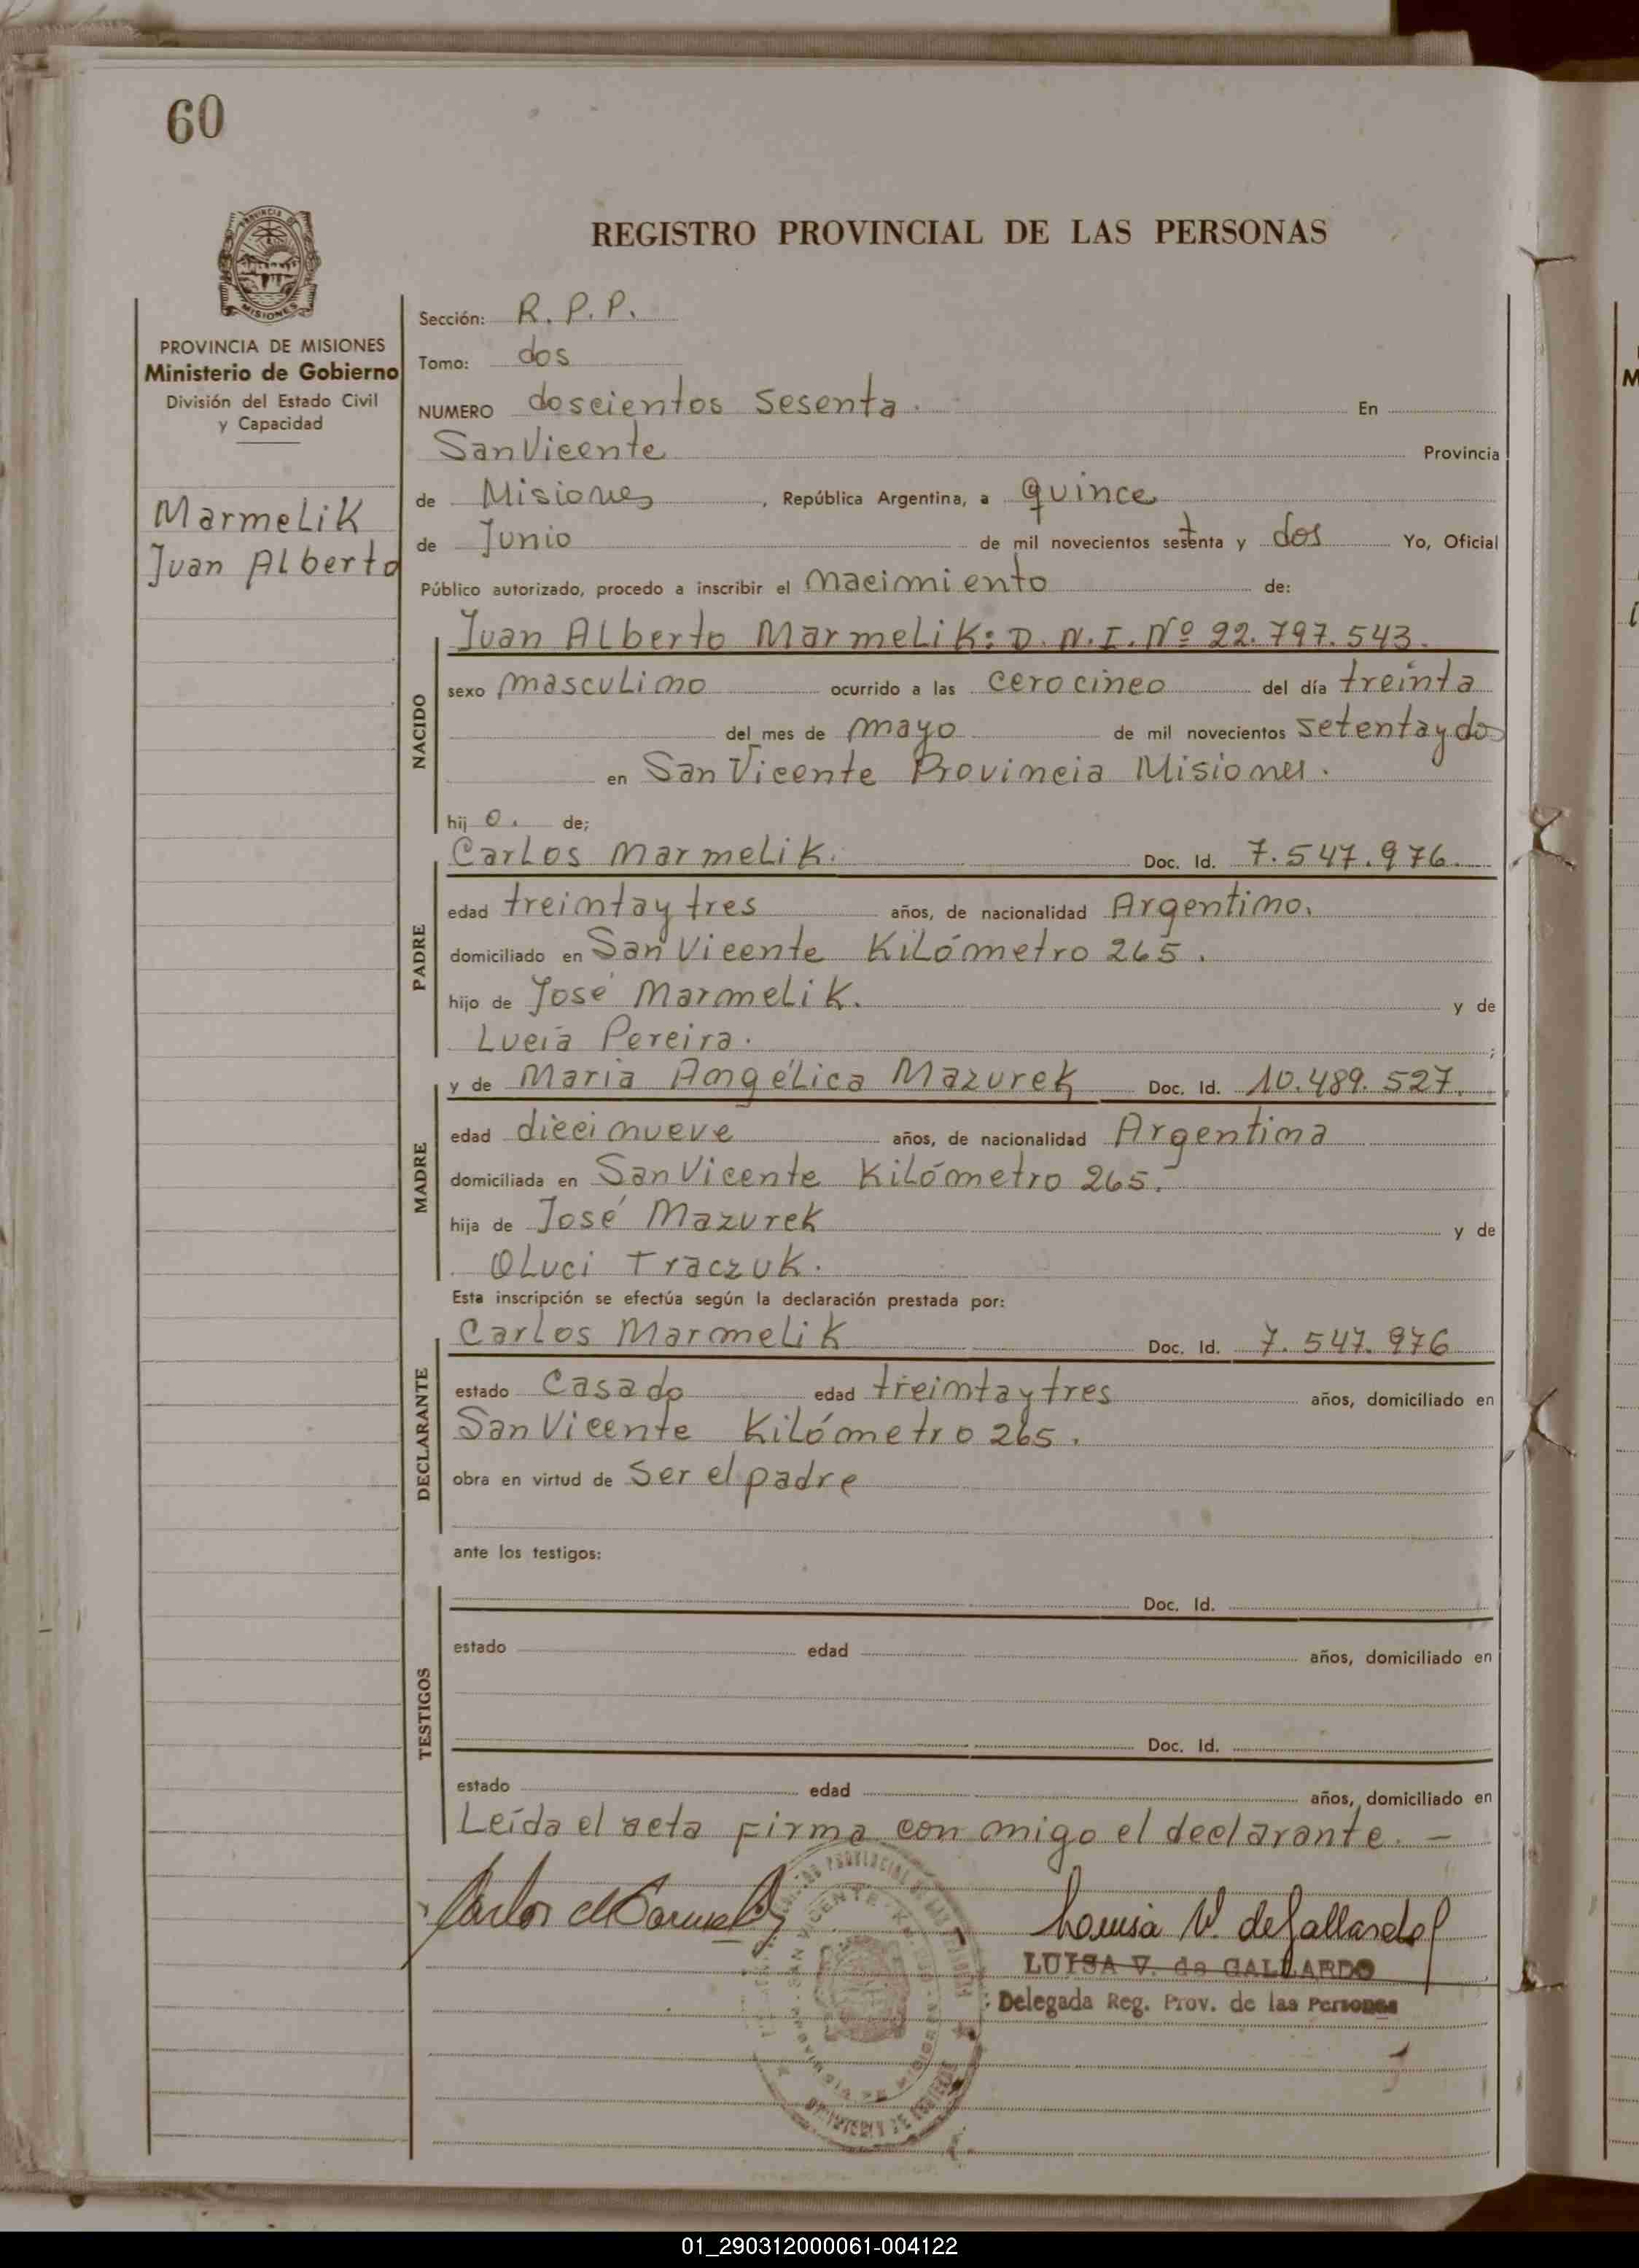 60
REGISTRO PROVINCIAL DE LAS PERSONAS
PROVINCIA DE MISIONES
Ministerio de Gobierno
División del Estado Civil
y Capacidad
Marmelik
Juan Alberto
Sección: R. P. P.
Tomo: dos
NUMERO doscientos sesenta. En
San Vicente Provincia
de Misiones, República Argentina, a quince
de Junio de mil novecientos setenta y dos Yo, Oficial
Público autorizado, procedo a inscribir el nacimiento de:
NACIDO
Juan Alberto Marmelik: D. N. I. Nº 22.797.543.
sexo masculino ocurrido a las cero cinco del día treinta
del mes de mayo de mil novecientos setenta y dos
en San Vicente Provincia Misiones.
hij o. de;
PADRE
Carlos Marmelik. Doc. Id. 7.547.976.
edad treinta y tres años, de nacionalidad Argentino.
domiciliado en San Vicente Kilómetro 265.
hijo de José Marmelik. y de
Lucía Pereira. ;
MADRE
y de Maria Angélica Mazurek Doc. Id. 10.489.527.
edad diecinueve años, de nacionalidad Argentina
domiciliada en San Vicente Kilómetro 265.
hija de José Mazurek y de
Oluci Traczuk.
Esta inscripción se efectúa según la declaración prestada por:
DECLARANTE
Carlos Marmelik Doc. Id. 7.547.976
estado Casado edad treinta y tres años, domiciliado en
San Vicente Kilómetro 265.
obra en virtud de Ser el padre
ante los testigos:
TESTIGOS
Doc. Id.
estado edad años, domiciliado en
Doc. Id.
estado edad años, domiciliado en
Leída el acta firma con migo el declarante. -
Luisa V. de Gallardo
LUISA V. de GALLARDO
Delegada Reg. Prov. de las Personas
01_290312000061-004122